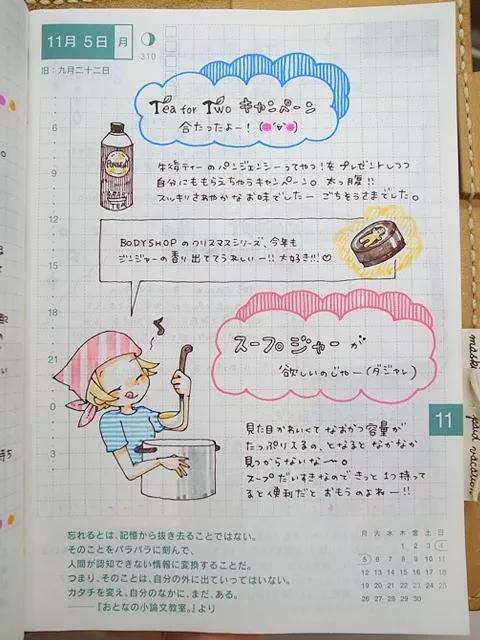 11月 5日 月
310
旧:九月二十二日
Tea for Two キャンペーン
合たったよー!
午後ティーのパンジェンシーってやつ!をプレゼントしつつ
自分にももらえちゃうキャンペーン。太っ腹!!
スッキリさわやかなお味でしたー ごちそうさまでした。
BODYSHOPのクリスマスシリーズ、今年も
ジンジャーの香り出ててうれしいー!! 大好き!!!♡
スープジャーが
欲しいのじゃー(ダジャレ)
見た目かわいくて なおかつ容量が
たっぷり入るの、となると なかなか
見つからないなー。
スープだいすきなので きっと1つ持って
ると便利だと おもうのよねー!!
6
9
12
15
18
21
0
3
11
忘れるとは、記憶から抜き去ることではない。
そのことをバラバラに刻んで、
人間が認知できない情報に変換することだ。
つまり、そのことは、自分の外に出ていってはいない。
カタチを変え、自分のなかに、まだ、ある。
——『おとなの小論文教室。』より
月 火 水 木 金 土 日
1 2 3 4
5 6 7 8 9 10 11
12 13 14 15 16 17 18
19 20 21 22 23 24 25
26 27 28 29 30